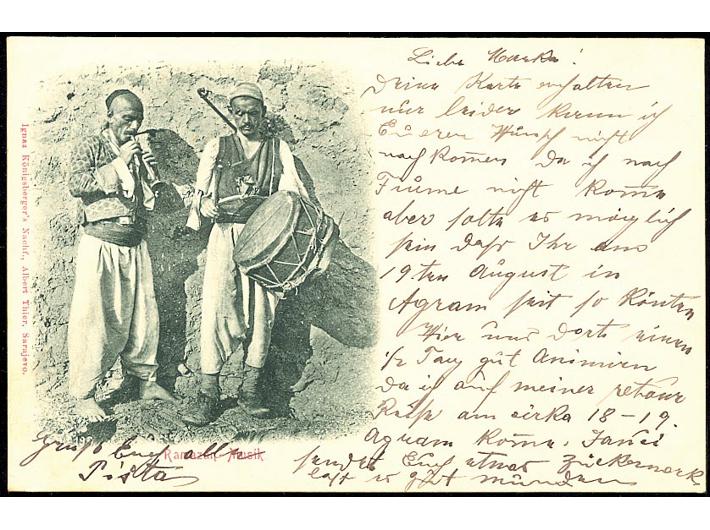 Liebe Manka!
Deine Karte erhalten
nur leider kann ich
Eueren Wunsch nicht
nachkomen da ich nach
Fiume nicht kome
aber sollte es möglich
sein daß Ihr am
19ten August in
Agram seit so könten
Wir uns dort einen
1/2 Tag gut Animiren
da ich auf meiner retour
Reise am cirka 18-19.
Agram kome. Janči
sendet Euch etwas Zuckerwerk
laßt es gut munden
Gruß Euch alle
Pišta
Ramazan Musik
Ignaz Königsberger's Nachf., Albert Thier, Sarajevo.